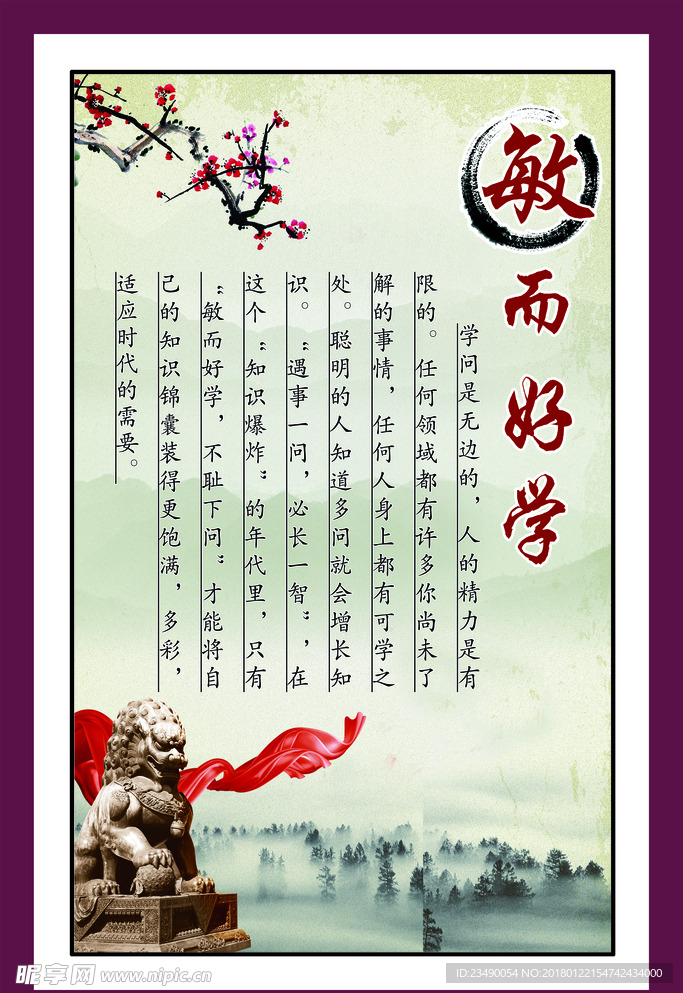 敏而好学
学问是无边的，人的精力是有
限的。任何领域都有许多你尚未了
解的事情，任何人身上都有可学之
处。聪明的人知道多问就会增长知
识。“遇事一问，必长一智”，在
这个“知识爆炸”的年代里，只有
“敏而好学，不耻下问”才能将自
己的知识锦囊装得更饱满，多彩，
适应时代的需要。
昵享网 www.nipic.cn
ID:23490054 NO:20180122154742434000